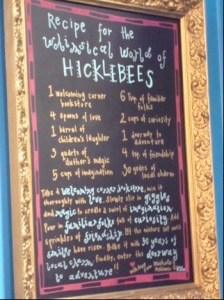 Recipe for the
whimsical world of
HICKLIBEES
1 welcoming corner
bookstore
4 spoons of love
1 barrel of
children's laughter
3 quarts of
author's magic
5 cups of imagination
6 Tbsp of familiar
folks
2 cups of curiosity
1 journey to
adventure
4 tsp of friendship
30 years of
local charm
Take a welcoming corner bookstore, mix it
thoroughly with love. Slowly stir in giggles
and magic to create a swirl of imagination
Pour in familiar folks full of curiosity. Add
sprinkles of friendship. Let the mixture set until
smiles have risen. Bake it with 30 years of
local charm. Finally, enter the doorway
to adventure!!